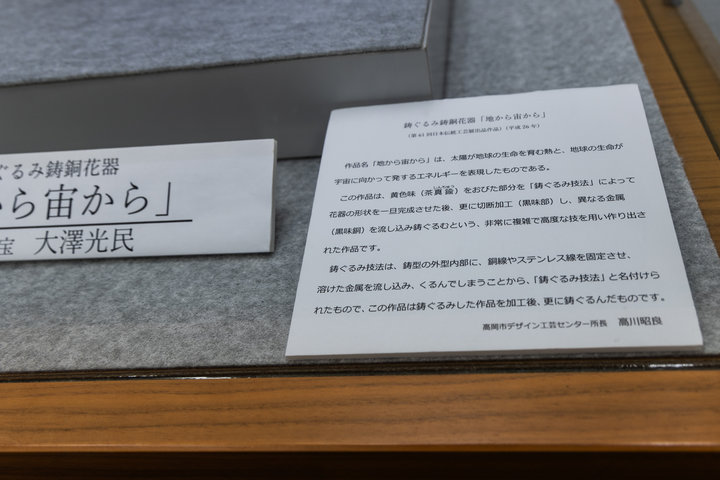 ぐるみ鋳銅花器
から宙から」
宝 大澤光民
鋳ぐるみ鋳銅花器「地から宙から」
(第61回日本伝統工芸展出品作品)(平成26年)
作品名「地から宙から」は、太陽が地球の生命を育む熱と、地球の生命が
宇宙に向かって発するエネルギーを表現したものである。
この作品は、黄色味(茶真鍮)をおびた部分を「鋳ぐるみ技法」によって
しんちゅう
花器の形状を一旦完成させた後、更に切断加工(黒味部)し、異なる金属
(黒味銅)を流し込み鋳ぐるむという、非常に複雑で高度な技を用い作り出さ
れた作品です。
鋳ぐるみ技法は、鋳型の外型内部に、銅線やステンレス線を固定させ、
溶けた金属を流し込み、くるんでしまうことから、「鋳ぐるみ技法」と名付けら
れたもので、この作品は鋳ぐるみした作品を加工後、更に鋳ぐるんだものです。
高岡市デザイン工芸センター所長 高川昭良